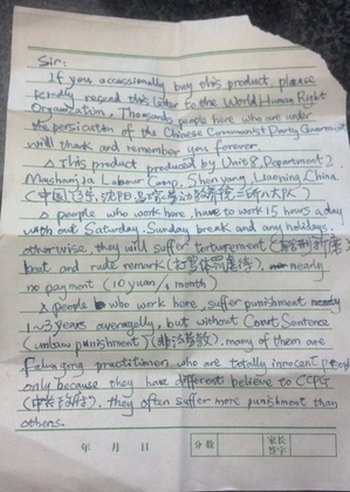 Sir:
If you occassionally buy this product, please
kindly resend this letter to the World Human Right
Organization. Thousands people here who are under
the persicution of the Chinese Communist Party Government
will thank and remember you forever.
△ This product produced by Unit 8, Department 2,
Mashanjia Labour Camp, Shenyang, Liaoning, China
(中国,辽宁,沈阳,马三家劳动教养院二所八大队)
△ people who work here, have to work 15 hours a day
with out Saturday, Sunday break and any holidays,
otherwise, they will suffer torturement
beat and rude remark (打骂体罚虐待), nearly
no payment (10 yuan / 1 month)
△ people who work here, suffer punishment
1~3 years averagelly, but without Court Sentence
(unlaw punishment) (非法劳教). many of them are
Falungong practitioner, who are totally innocent people
only because they have different believe to CCPG
(中共政府). they often suffer more punishment than
others.
年 月 日
分数
家长
签字